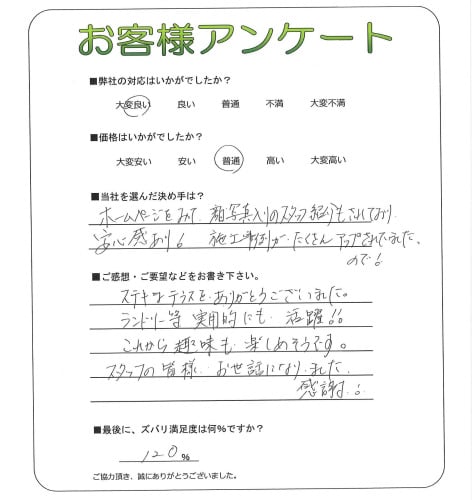 お客様アンケート
■弊社の対応はいかがでしたか？
大変良い 良い 普通 不満 大変不満
■価格はいかがでしたか？
大変安い 安い 普通 高い 大変高い
■当社を選んだ決め手は？
ホームページをみて、顔写真入りのスタッフ紹介もされており、
安心感あり！ 施工事例が、たくさんアップされていました。
ので！
■ご感想・ご要望などをお書き下さい。
ステキなテラスを、ありがとうございました。
ランドリー等 実用的にも、活躍！！
これから趣味も、楽しめそうです。
スタッフの皆様、お世話になりました。
感謝！
■最後に、ズバリ満足度は何％ですか？
120％
ご協力頂き、誠にありがとうございました。